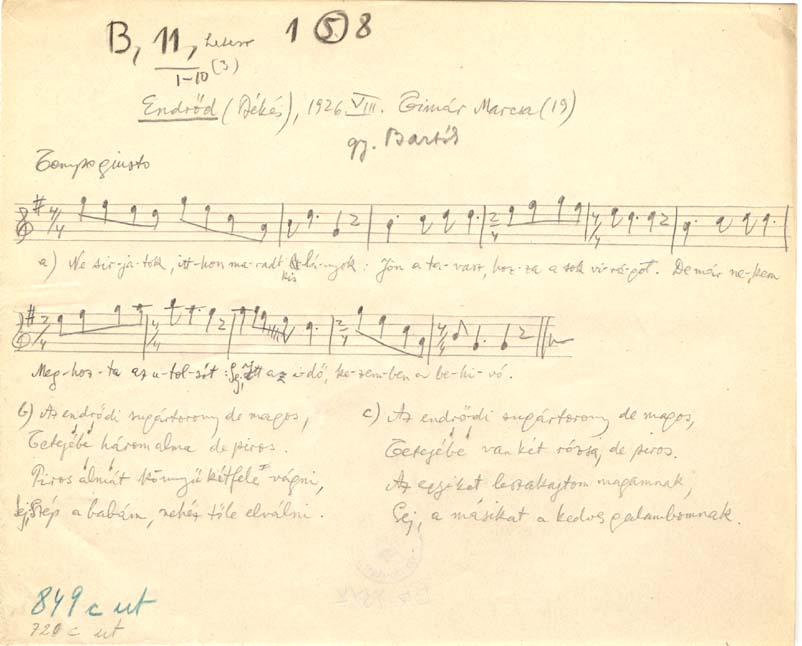 B, 11, 1 5 8
1-10 (3)
Endrőd (Békés), 1926 VIII. Timár Marcsa (19)
gy. Bartók
Tempo giusto
a) Ne sír-ja-tok, itt-hon ma-radt kis lá-nyok: Jön a ta-vasz, hoz-za a sok vi-rá-got. De már ne-kem
Meg-hoz-ta az u-tol-sót: Sej, Itt az i-dő, ke-zem-ben a be-hi-vó.
b) Az endrődi sugártorony de magos,
Tetejébe három alma de piros.
Piros almát könnyű kétfele vágni,
Sej, Szép a babám, nehéz tőle elválni.
c) Az endrődi sugártorony de magos,
Tetejébe van két rózsa, de piros.
Az egyiket leszakajtom magamnak,
Sej, a másikat a kedves galambomnak.
849 c ut
720 c ut